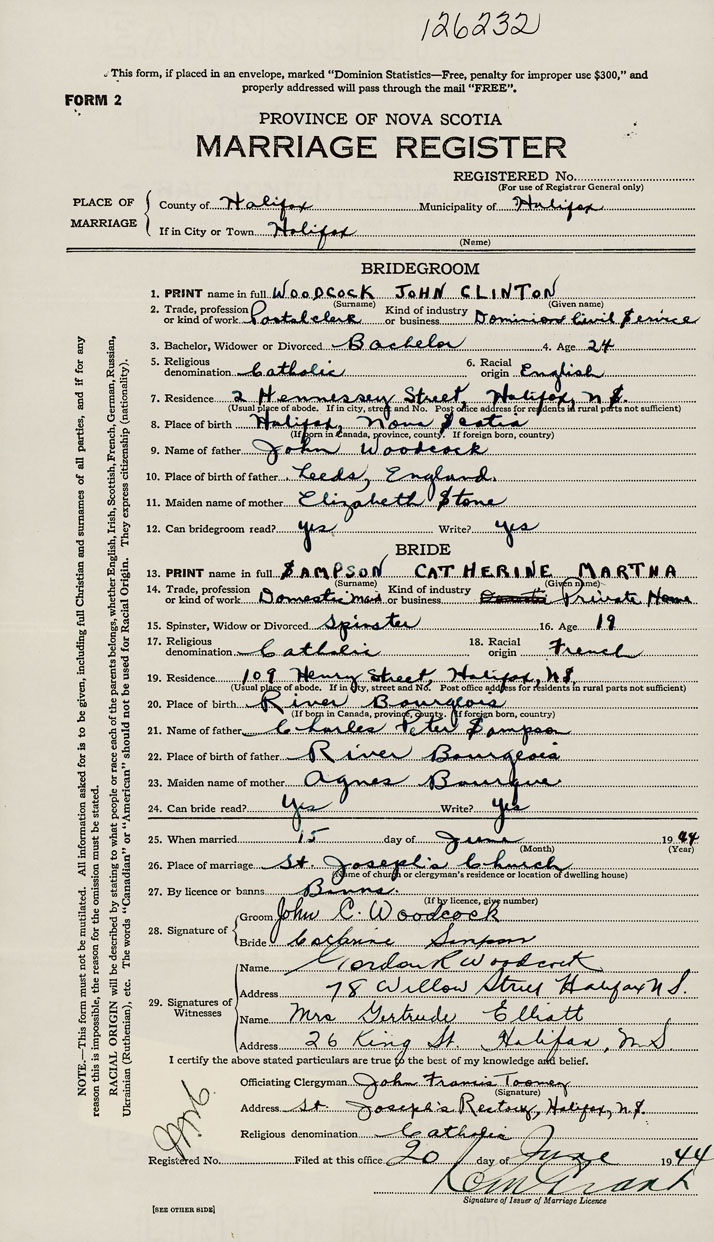 126232
This form, if placed in an envelope, marked "Dominion Statistics—Free, penalty for improper use $300," and
properly addressed will pass through the mail "FREE".
FORM 2
PROVINCE OF NOVA SCOTIA
MARRIAGE REGISTER
REGISTERED No.
(For use of Registrar General only)
PLACE OF MARRIAGE
County of Halifax Municipality of Halifax
If in City or Town Halifax
(Name)
BRIDEGROOM
1. PRINT name in full WOODCOCK JOHN CLINTON
(Surname) (Given name)
2. Trade, profession or kind of work Postal clerk Kind of industry or business Dominion Civil Service
3. Bachelor, Widower or Divorced Bachelor 4. Age 24
5. Religious denomination Catholic 6. Racial origin English
7. Residence 2 Hennessey Street, Halifax, N.S.
(Usual place of abode. If in city, street and No. Post office address for residents in rural parts not sufficient)
8. Place of birth Halifax, Nova Scotia
(If born in Canada, province, county. If foreign born, country)
9. Name of father John Woodcock
10. Place of birth of father Leeds, England.
11. Maiden name of mother Elizabeth Stone
12. Can bridegroom read? yes Write? yes
BRIDE
13. PRINT name in full SAMPSON CATHERINE MARTHA
(Surname) (Given name)
14. Trade, profession or kind of work Domestic Maid Kind of industry or business Private Home
15. Spinster, Widow or Divorced Spinster 16. Age 19
17. Religious denomination Catholic 18. Racial origin French
19. Residence 109 Henry Street, Halifax, N.S.
(Usual place of abode. If in city, street and No. Post office address for residents in rural parts not sufficient)
20. Place of birth River Bourgeois
(If born in Canada, province, county. If foreign born, country)
21. Name of father Charles Peter Sampson
22. Place of birth of father River Bourgeois
23. Maiden name of mother Agnes Bourque
24. Can bride read? Yes Write? Yes
25. When married 15 day of June 1944
(Month) (Year)
26. Place of marriage St. Joseph's Church
(Name of church or clergyman's residence or location of dwelling house)
27. By licence or banns Banns.
(If by licence, give number)
28. Signature of
Groom John C. Woodcock
Bride Catherine Sampson
29. Signatures of Witnesses
Name Gordon R Woodcock
Address 78 Willow Street Halifax N S.
Name Mrs Gertrude Elliott
Address 26 King St. Halifax, N S
I certify the above stated particulars are true to the best of my knowledge and belief.
Officiating Clergyman John Francis Toomey
(Signature)
Address St. Joseph's Rectory, Halifax, N.S.
Religious denomination Catholic
Registered No. Filed at this office 20 day of June 1944
Signature of Issuer of Marriage Licence
[SEE OTHER SIDE]
NOTE.—This form must not be mutilated. All information asked for is to be given, including full Christian and surnames of all parties, and if for any
reason this is impossible, the reason for the omission must be stated.
RACIAL ORIGIN will be described by stating to what people or race each of the parents belongs, whether English, Irish, Scottish, French, German, Russian,
Ukrainian (Ruthenian), etc. The words "Canadian" or "American" should not be used for Racial Origin. They express citizenship (nationality).